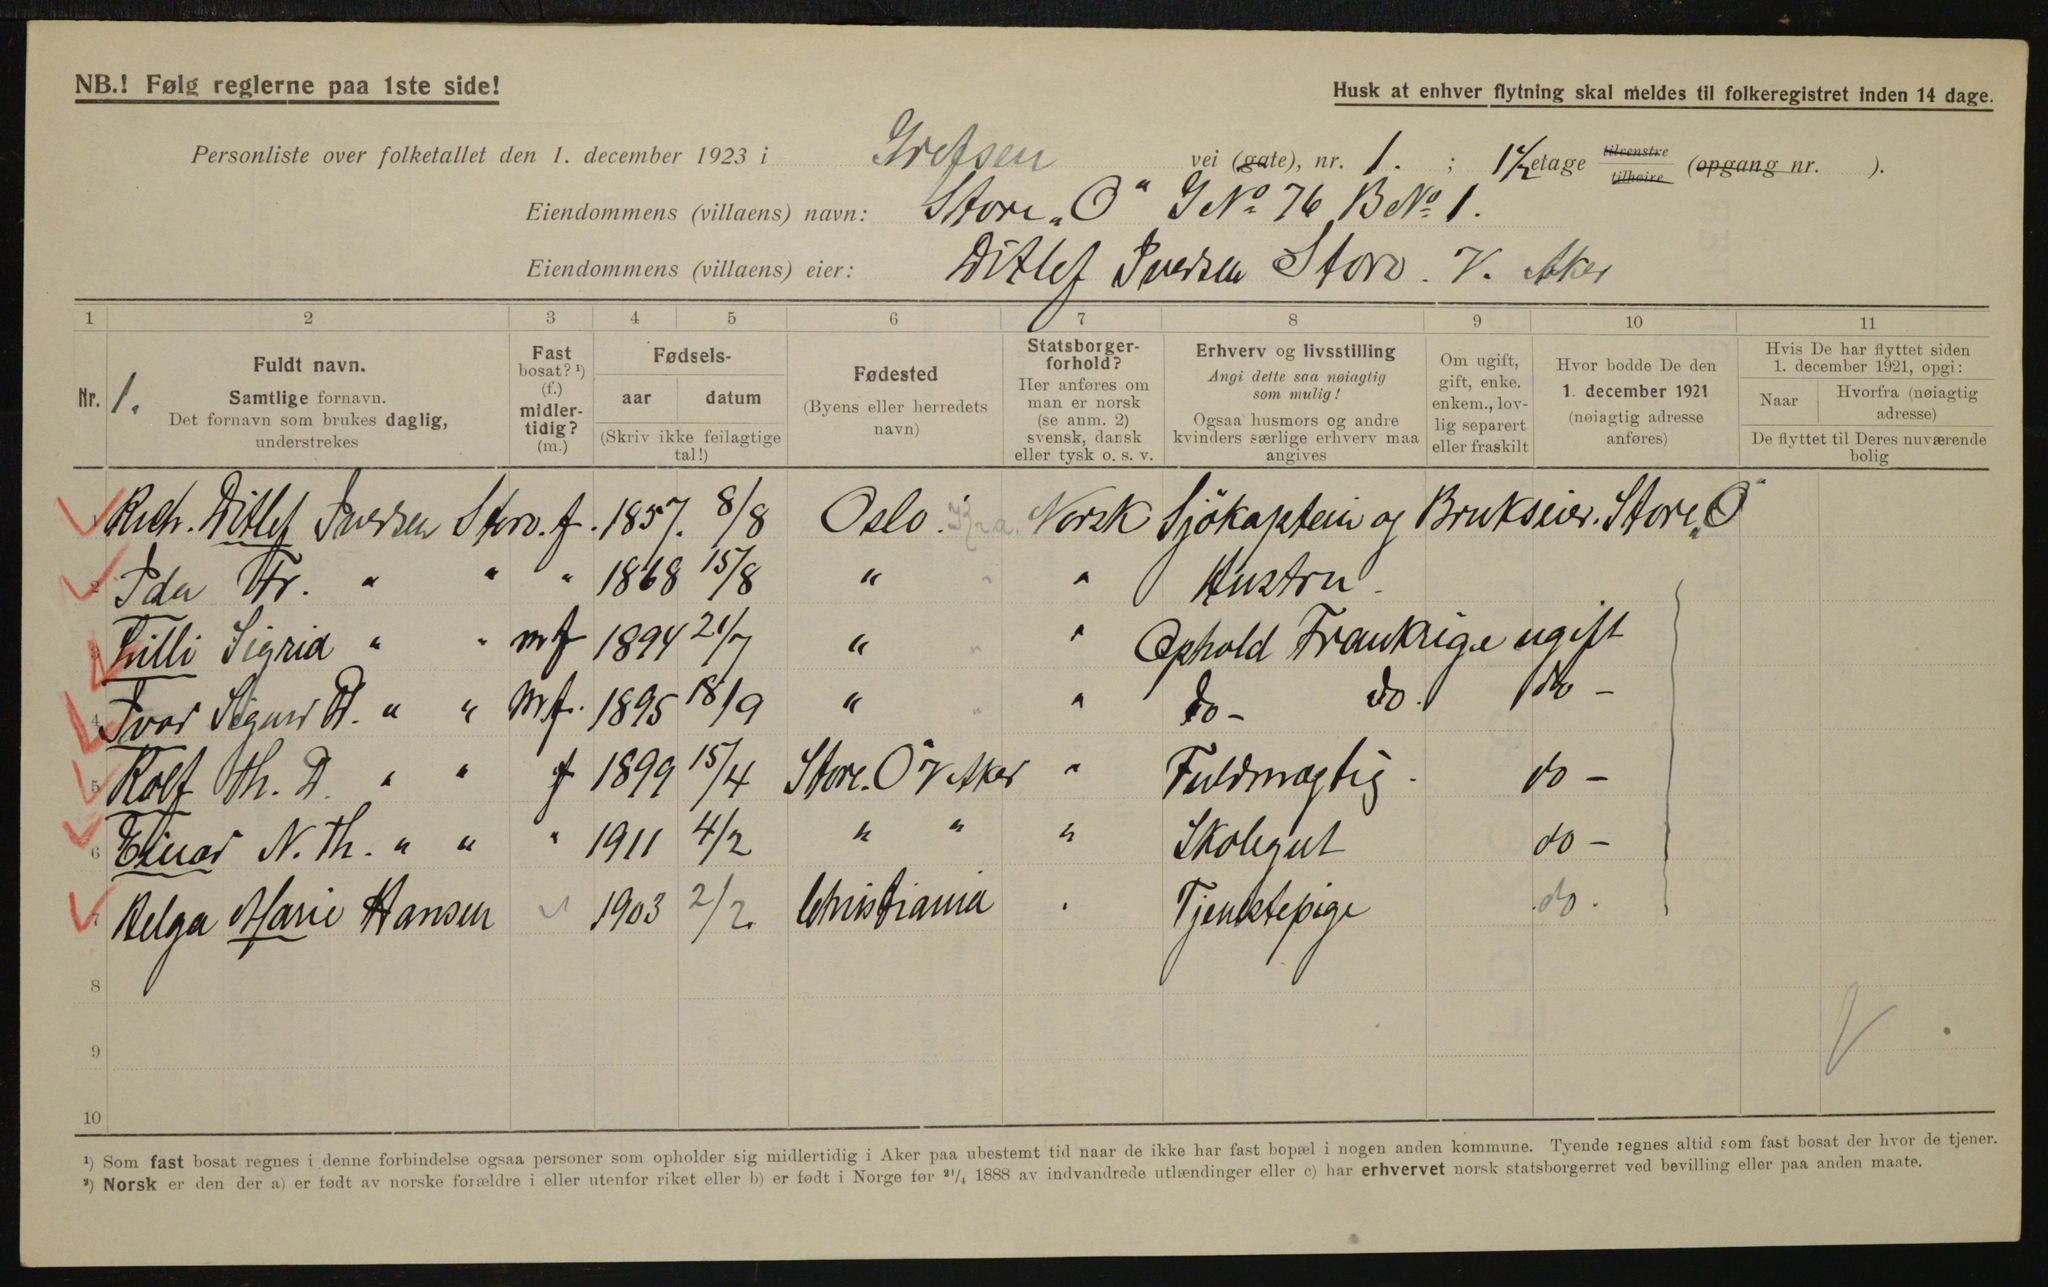 NB.! Følg reglerne paa 1ste side!
Husk at enhver flytning skal meldes til folkeregistret inden 14 dage.
Personliste over folketallet den 1. december 1923 i Grefsen vei (gate), nr. 1. ; 1 1/2 etage tilvenstre tilhøire (opgang nr. ).
Eiendommens (villaens) navn: Store „O“ G No 76 B No 1.
Eiendommens (villaens) eier: Ditlef Iversen Storo. V. Aker
1 2 3 4 5 6 7 8 9 10 11
Nr. 1.
Fuldt navn.
Samtlige fornavn.
Det fornavn som brukes daglig,
understrekes
Fast
bosat? ¹)
(f.)
midler-
tidig?
(m.)
Fødsels-
aar datum
(Skriv ikke feilagtige
tal!)
Fødested
(Byens eller herredets
navn)
Statsborger-
forhold?
Her anføres om
man er norsk
(se anm. 2)
svensk, dansk
eller tysk o. s. v.
Erhverv og livsstilling
Angi dette saa nøiagtig
som mulig!
Ogsaa husmors og andre
kvinders særlige erhverv maa
angives
Om ugift,
gift, enke.
enkem., lov-
lig separert
eller fraskilt
Hvor bodde De den
1. december 1921
(nøiagtig adresse
anføres)
Hvis De har flyttet siden
1. december 1921, opgi:
Naar
Hvorfra (nøiagtig
adresse)
De flyttet til Deres nuværende
bolig
Rich. Ditlef Iversen Storo. f. 1857. 8/8 Oslo. Kra. Norsk Sjökaptein og Brukseier. Store „O“
2 Ida Fr. " " " 1868 15/8 " " " Hustru.
3 Lilli Sigrid " " m f 1894 21/7 " " " Ophold Frankrige ugift
4 Ivar Sigurd D. " " m f. 1895 18/9 " " " do - do. do -
5 Rolf Th. D. " " f 1899 15/4 Store. O V Aker " Fuldmægtig. do -
6 Einar N. Th. " " " 1911 4/2 " " " Skolegut do -
7 Helga Marie Hansen " 1903 2/2. Christiania " Tjenestepige do.
8
9
10
¹) Som fast bosat regnes i denne forbindelse ogsaa personer som opholder sig midlertidig i Aker paa ubestemt tid naar de ikke har fast bopæl i nogen anden kommune. Tyende regnes altid som fast bosat der hvor de tjener.
²) Norsk er den der a) er født av norske forældre i eller utenfor riket eller b) er født i Norge før ²¹/₄ 1888 av indvandrede utlændinger eller c) har erhvervet norsk statsborgerret ved bevilling eller paa anden maate.